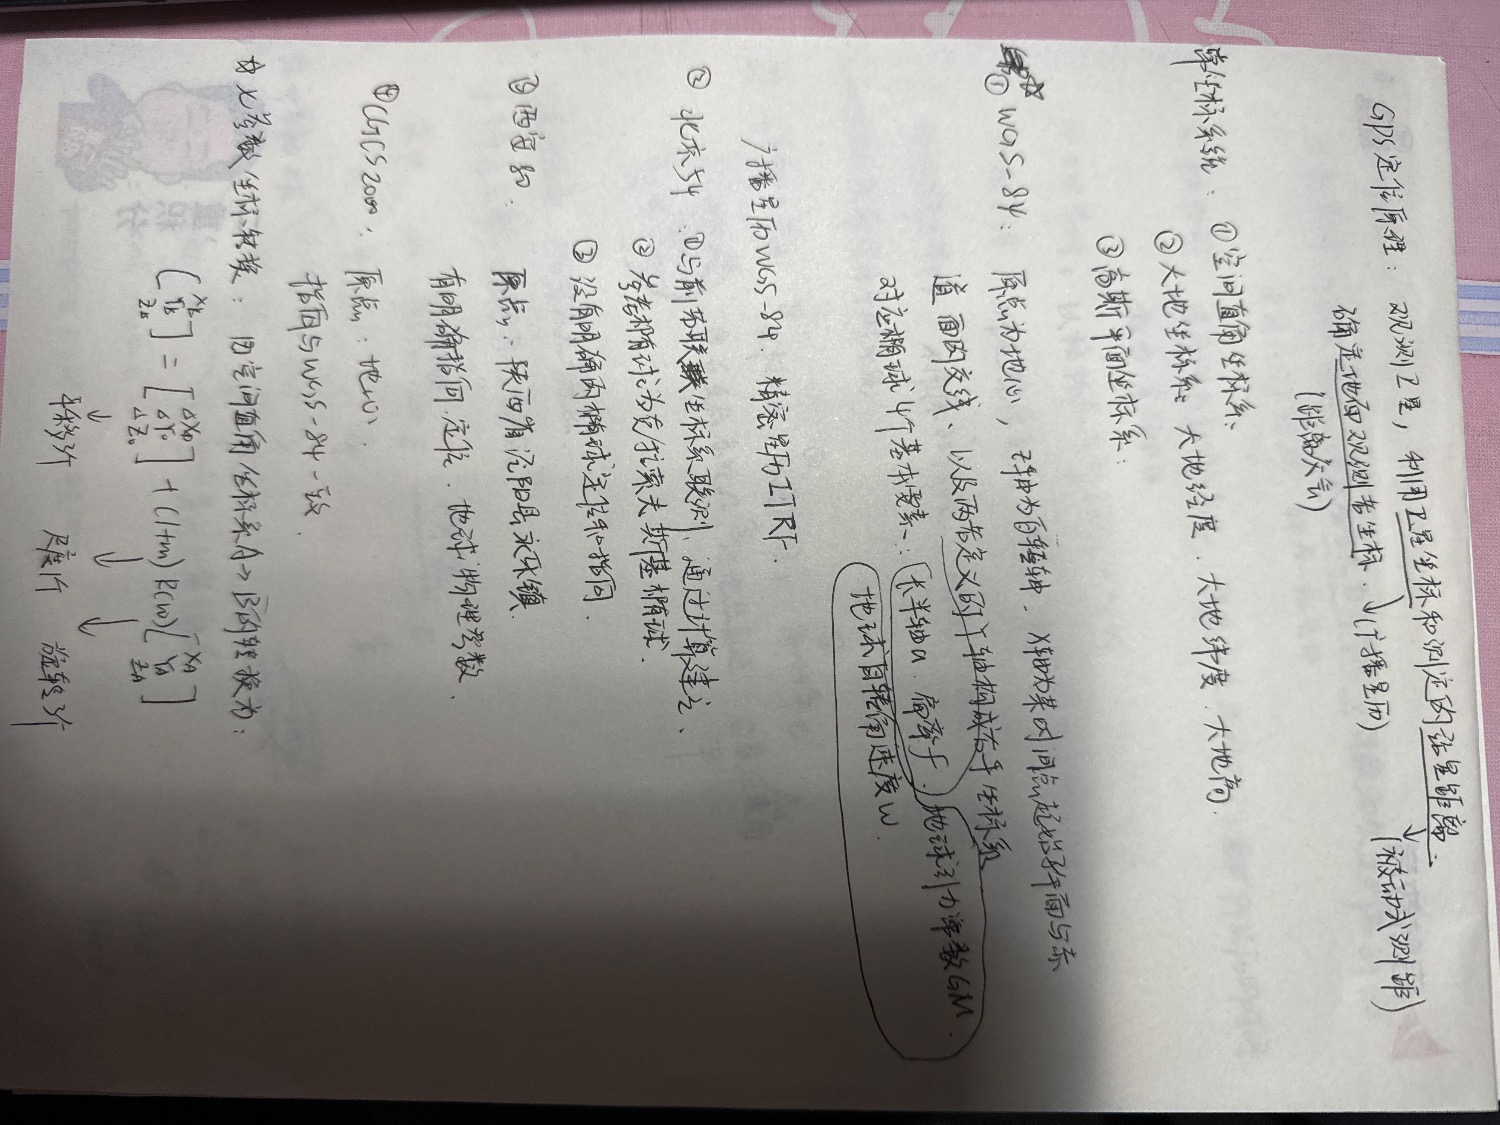 GPS定位原理：观测卫星，利用卫星坐标和测定的站星距离.
确定地面观测者坐标. (广播星历) (被动式测距)
(距离交会)
坐标系统：①空间直角坐标系
②大地坐标系：大地经度.大地纬度.大地高.
③高斯平面坐标系：
①WGS-84：原点为地心，Z轴为自转轴.X轴为某时间点起始子午面与赤
道面的交线、以及两者定义的Y轴构成右手坐标系
对应椭球4个基本要素：长半轴a.扁率f.地球引力常数GM.
地球自转角速度w.
广播星历WGS-84.精密星历ITRF.
②北京54：①与前苏联坐标系联测，通过计算建立、
②参考椭球为克拉索夫斯基椭球.
③没有明确的椭球定位和指向.
③西安80：原点：陕西省泾阳县永乐镇
有明确指向定位.地球物理常数.
④CGCS2000：原点：地心.
指向与WGS-84一致.
七参数坐标转换：由空间直角坐标系A→B的转换为：
(XB YB ZB] = [ΔX0 ΔY0 ΔZ0] + (1+m) R(w) [XA YA ZA]
平移3个 尺度1个 旋转3个